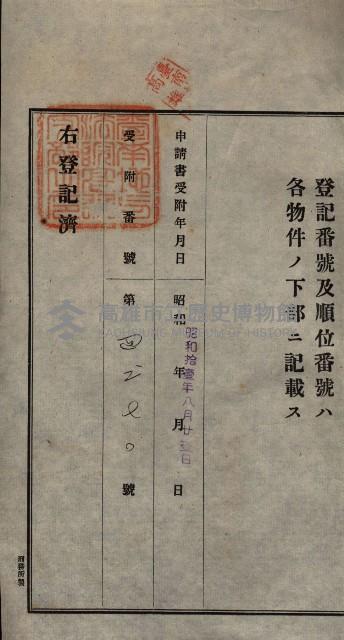 登記番號及順位番號ハ
各物件ノ下部ニ記載ス
申請書受附年月日
昭和 年 月 日
昭和拾壹年八月廿壹日
受附番號
第 四二七〇 號
右登記濟
高雄市立歷史博物館
KAOHSIUNG MUSEUM OF HISTORY
刑務所製